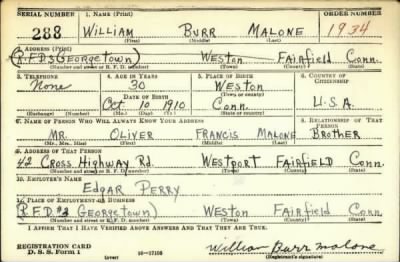 SERIAL NUMBER 1. NAME (Print) ORDER NUMBER
288 WILLIAM BURR MALONE 1934
(First) (Middle) (Last)
2. ADDRESS (Print)
(R.F.D 3 Georgetown) Weston Fairfield Conn.
(Number and street or R. F. D. number) (Town) (County) (State)
3. TELEPHONE 4. AGE IN YEARS 5. PLACE OF BIRTH 6. COUNTRY OF CITIZENSHIP
None 30 Weston
DATE OF BIRTH (Town or county)
Oct 10 1910 Conn. U.S.A.
(Exchange) (Number) (Mo.) (Day) (Yr.) (State or country)
7. NAME OF PERSON WHO WILL ALWAYS KNOW YOUR ADDRESS 8. RELATIONSHIP OF THAT PERSON
MR. OLIVER FRANCIS MALONE BROTHER
(Mr., Mrs., Miss) (First) (Middle) (Last)
9. ADDRESS OF THAT PERSON
42 CROSS HIGHWAY Rd. WESTPORT FAIRFIELD Conn.
(Number and street or R. F. D. number) (Town) (County) (State)
10. EMPLOYER'S NAME
Edgar Perry
11. PLACE OF EMPLOYMENT OR BUSINESS
(R.F.D. #3 Georgetown) Weston Fairfield Conn.
(Number and street or R. F. D. number) (Town) (County) (State)
I AFFIRM THAT I HAVE VERIFIED ABOVE ANSWERS AND THAT THEY ARE TRUE.
REGISTRATION CARD
D. S. S. Form 1 16-17105 William Burr Malone
(over) (Registrant's signature)